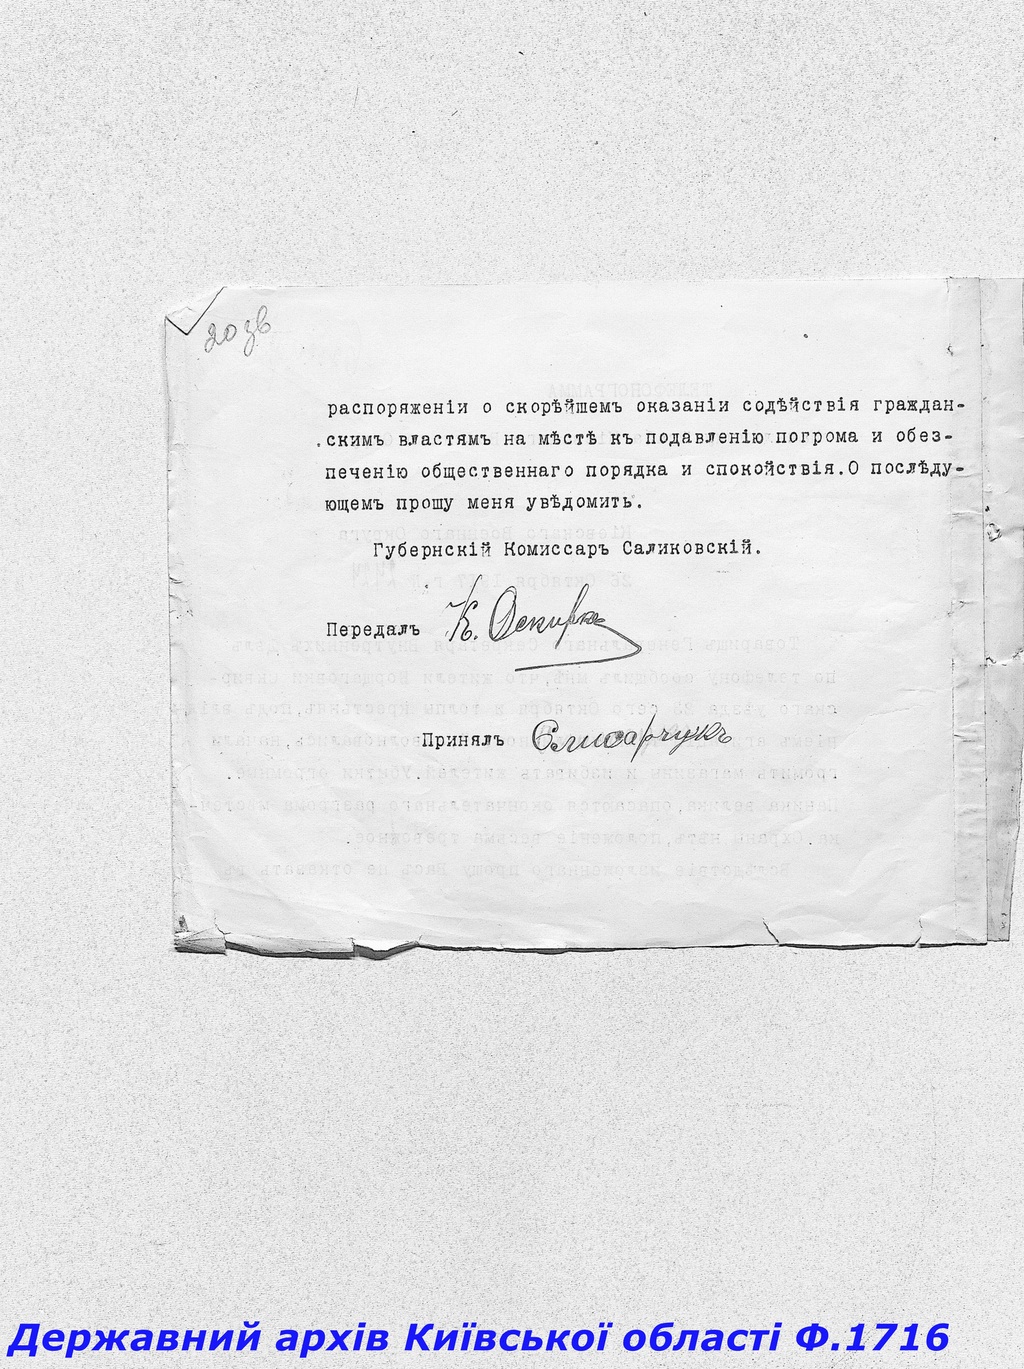 20 зв
распоряженіи о скорѣйшемъ оказаніи содѣйствія граждан-
скимъ властямъ на мѣстѣ къ подавленію погрома и обез-
печенію общественнаго порядка и спокойствія. О послѣду-
ющемъ прошу меня увѣдомить.
Губернскій Комиссаръ Саликовскій.
Передалъ К. Оскирко
Принялъ Слисарчукъ
Державний архів Київської області Ф.1716